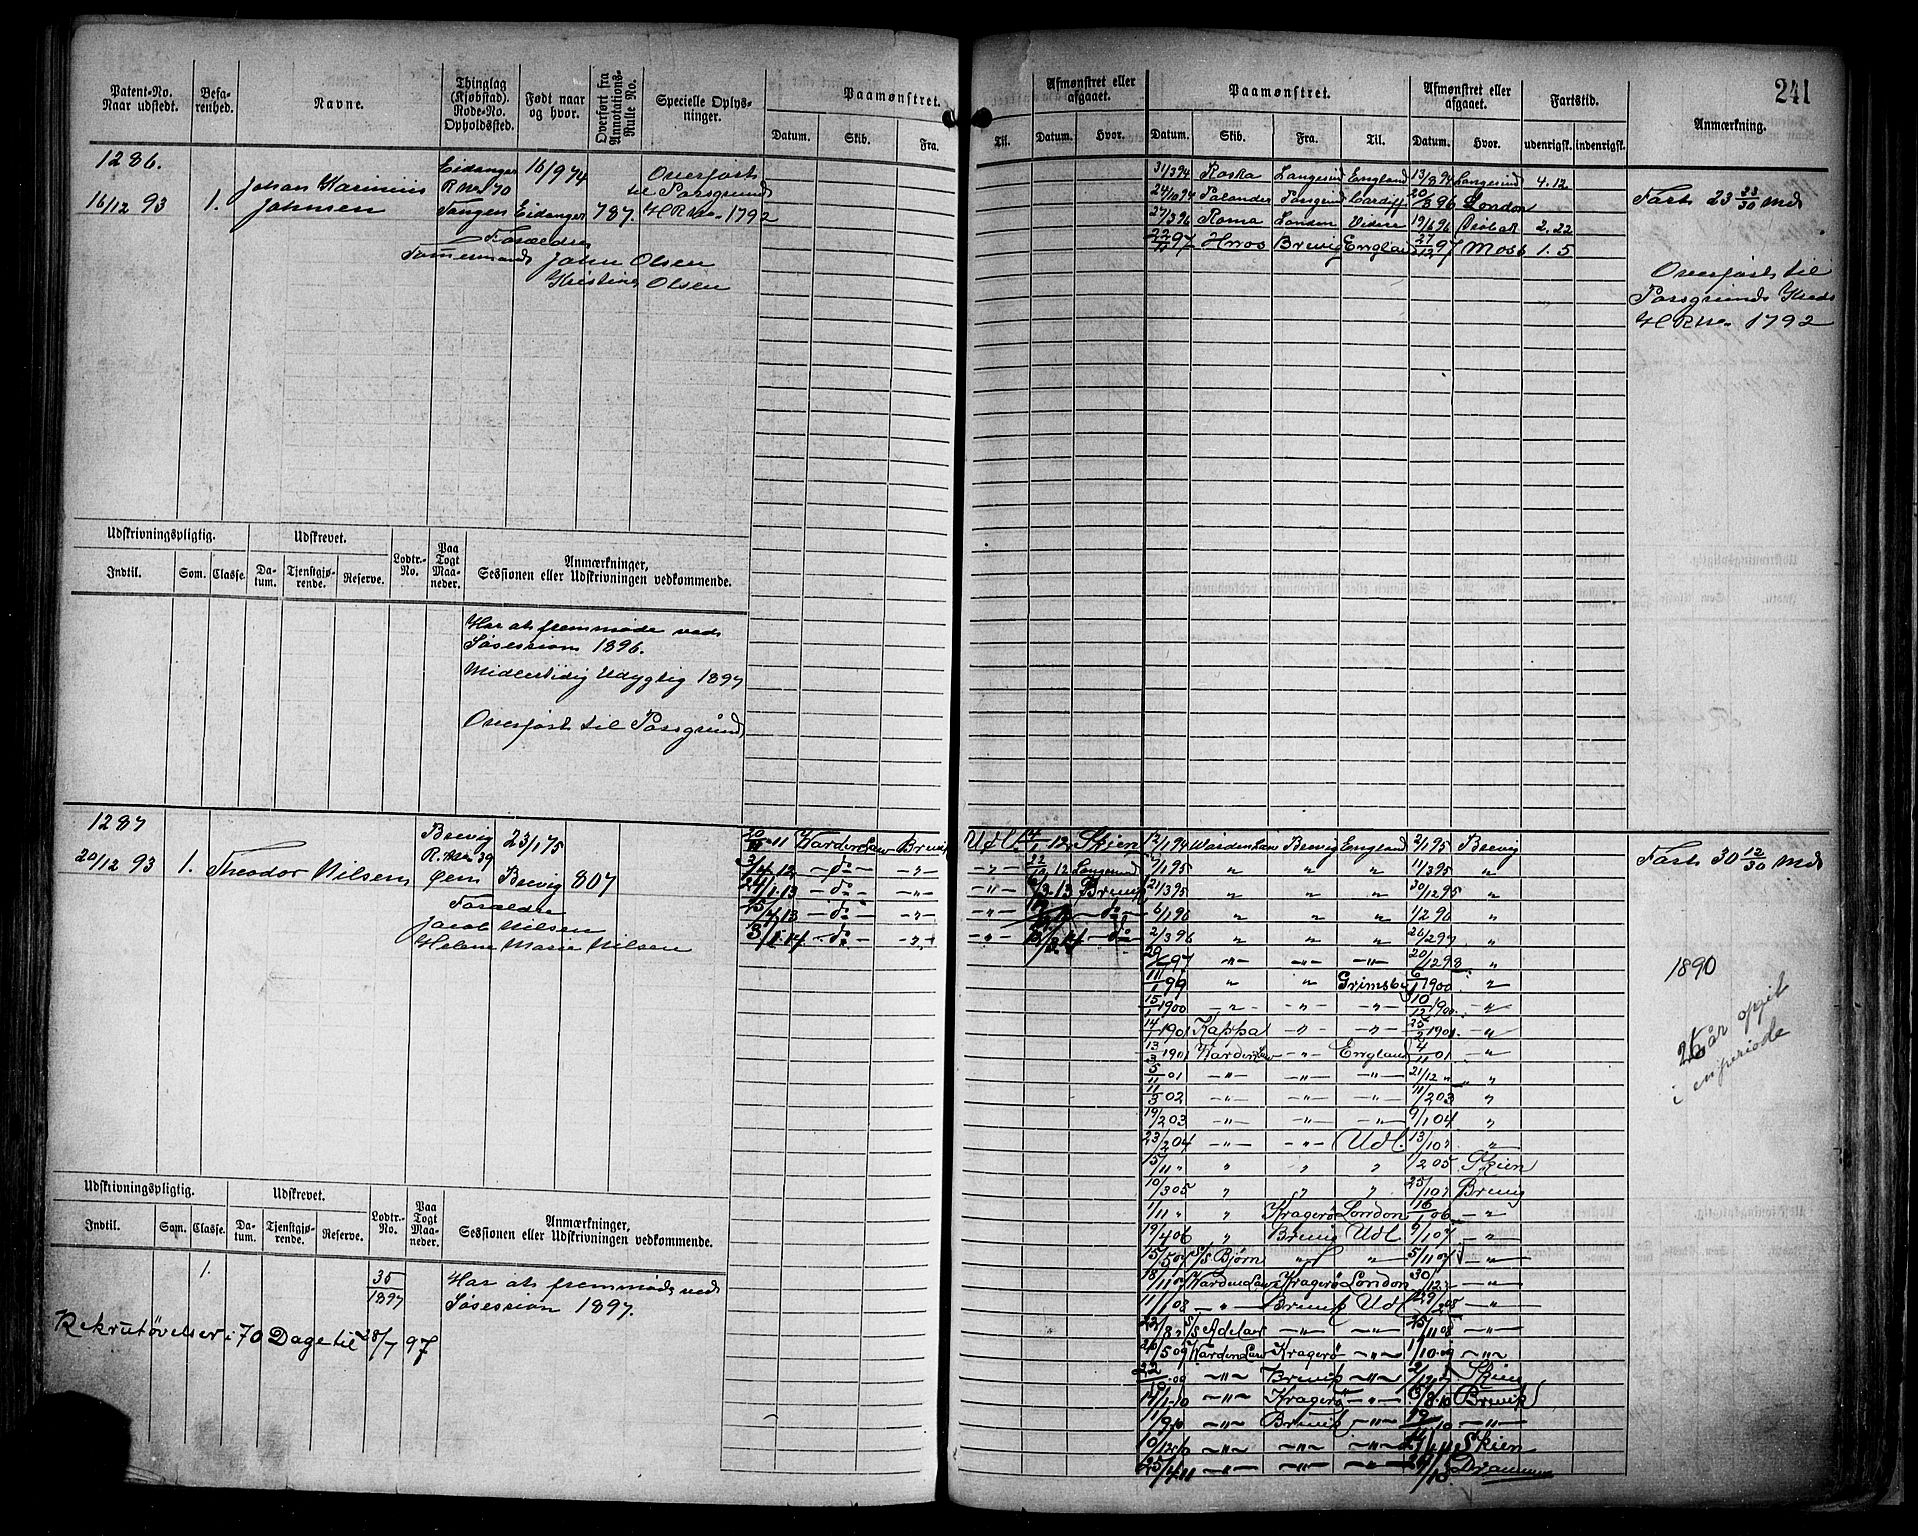 241
Patent-No. Naar udstedt.
Befarenhed.
Navne.
Thinglag (Kjøbstad). Rode-No. Opholdssted.
Født naar og hvor.
Overført fra Annotations-Rulle No.
Specielle Oplysninger.
Paamønstret.
Datum. Skib. Fra. Til.
Afmønstret eller afgaaet.
Datum. Hvor.
Paamønstret.
Datum. Skib. Fra. Til.
Afmønstret eller afgaaet.
Datum. Hvor.
Fartstid.
udenrigsk. indenrigsk.
Anmærkning.
1286.
16/12 93 1.
Johan Karinius
Johnsen
Eidanger
R No 70
Tangen
16/9 74
Eidanger
787.
Overført
til Porsgrund
H R No 1792
Forældre
Tømmermand John Olsen
Kristine Olsen
31/3 94 Roska Langesund England 13/8 94 Langesund 4.12
24/10 94 Palander Porsgrund Cardiff 20/3 96 London
27/3 96 Roma London 19/6 96 2.22
22/11 97 Hnos Brevig England 27/12 97 Moss 1.5
Fart 23 23/30 Md
Overført til
Porsgrunds Kreds
H R No. 1792
Udskrivningspligtig.
Indtil. Som. Classe.
Udskrevet.
Datum. Tjenstgjørende. Reserve.
Lodtr.-No.
Paa Togt Maaneder.
Anmærkninger, Sessionen eller Udskrivningen vedkommende.
Har at fremmøde ved
Søsession 1896.
Midlertidig Udygtig 1897
Overført til Porsgrund
1287
20/12 93 1.
Theodor Nilsen
Brevig
R. No 39
Øen
23/1 75
Brevig
807
Forældre
Jacob Nilsen
Helene Marie Nilsen
11 Warden Law Brevik Udl. 14/1 12 Skien
3/4 12 - do - - " - - " - 22/12 12 Langesund
24/1 13 - do - - " - - " - 13 Brevik
13 - do - - " - - " - - do -
3/1 14 - do - - " - - " - - do -
12/1 94 Warden Law Brevig England 2/1 95 Brevig
7/1 95 " " " 11/3 95 "
21/3 95 " " " 30/12 95 "
6/1 96 " " " 1/2 96 "
2/3 96 " " " 26/2 97 "
97 - " - - " - - " - 20/12 98 "
11/1 99 " " Grimsby 6/1 1900 "
15/1 1900 - " - " - " - 10/12 1900 - " -
14/1 1901 Kappa - " - - " - 25/2 1901 - " -
13/3 1901 Warden Law - " - England 4/11 01 - " -
5/11 01 - " - - " - - " - 21/12 " "
11/3 02 - " - - " - - " - 11/2 03 "
19/2 03 - " - - " - - " - 9/1 04 "
23/2 04 - " - - " - Udl. 13/10 " "
15/11 " " " " 1/2 05 Skien
10/3 05 " " " 25/10 " Brevig
1/11 " " Kragerø London 16/1 06 - " -
19/4 06 " Brevig Udl 6/1 07 - " -
15/5 07 S/S Bjørn " " 5/11 07 - " -
18/11 07 Warden Law Kragerø London 30/12 " - " -
1/1 08 - " - Brevik Udl 29/2 08 - " -
22/8 " S/S Adelaer - " - - " - 25/11 08 - " -
20/5 09 Warden Law Kragerø - " - 1/10 09 - " -
22/10 09 - " - Brevik - " - Skien
14/1 10 - " - Kragerø - " - 13/8 10 Brevik
11/9 10 - " - Brevik - " - 10 - " -
10/12 10 - " - - " - - " - Skien
25/4 11 - " - - " - - " - Drammen
Fart 30 12/30 Md
1890
26 år opgit
i en periode
Udskrivningspligtig.
Indtil. Som. Classe.
Udskrevet.
Datum. Tjenstgjørende. Reserve.
Lodtr.-No.
Paa Togt Maaneder.
Anmærkninger, Sessionen eller Udskrivningen vedkommende.
1.
35/1897
Har at fremmøde ved
Søsession 1897.
Rekrutøvelser i 70 Dage til 28/7 97